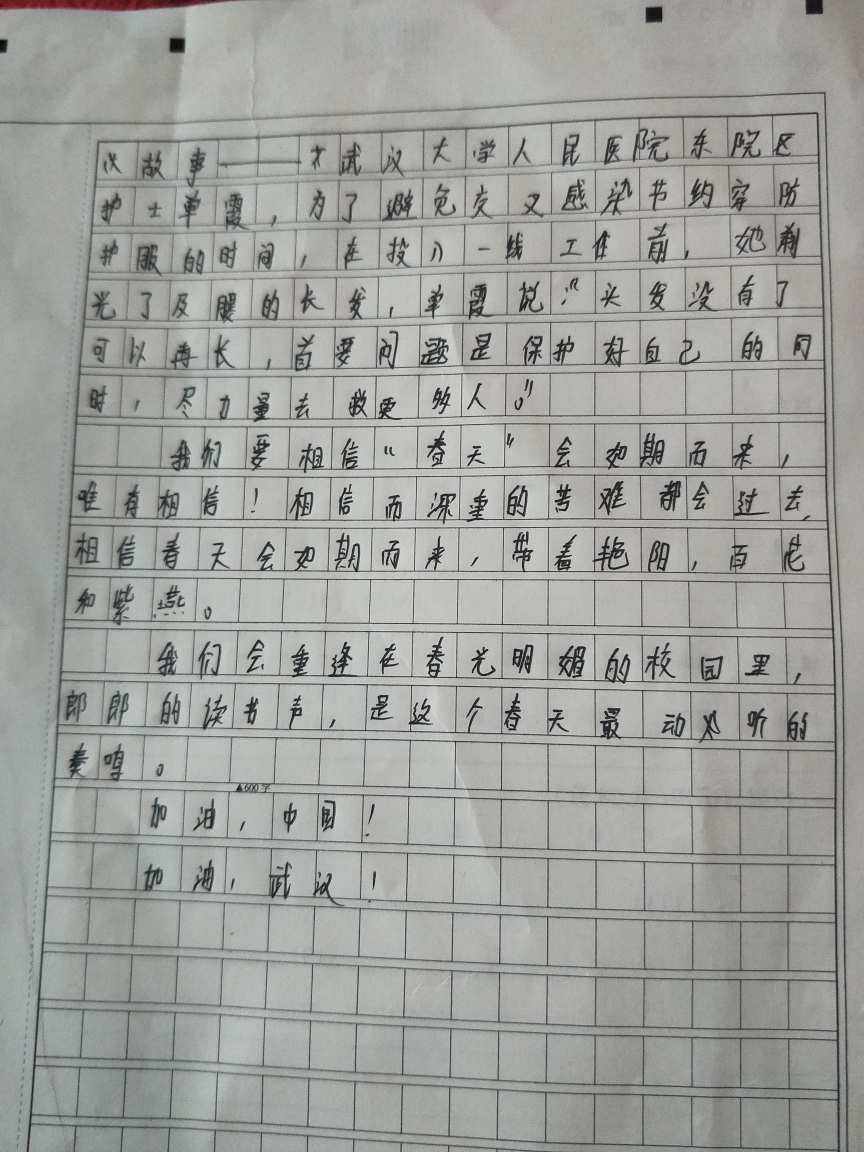 故事——武汉大学人民医院东院区
护士单霞，为了避免交叉感染节约穿防
护服的时间，在投入一线工作前，她剃
光了及腰的长发，单霞说：“头发没有了
可以再长，首要问题是保护好自己的同
时，尽力量去救更多人。”
我们要相信“春天”会如期而来，
唯有相信！相信而深重的苦难都会过去，
相信春天会如期而来，带着艳阳，百花
和紫燕。
我们会重逢在春光明媚的校园里，
郎郎的读书声，是这个春天最动听的
奏鸣。
▲600字
加油，中国！
加油，武汉！